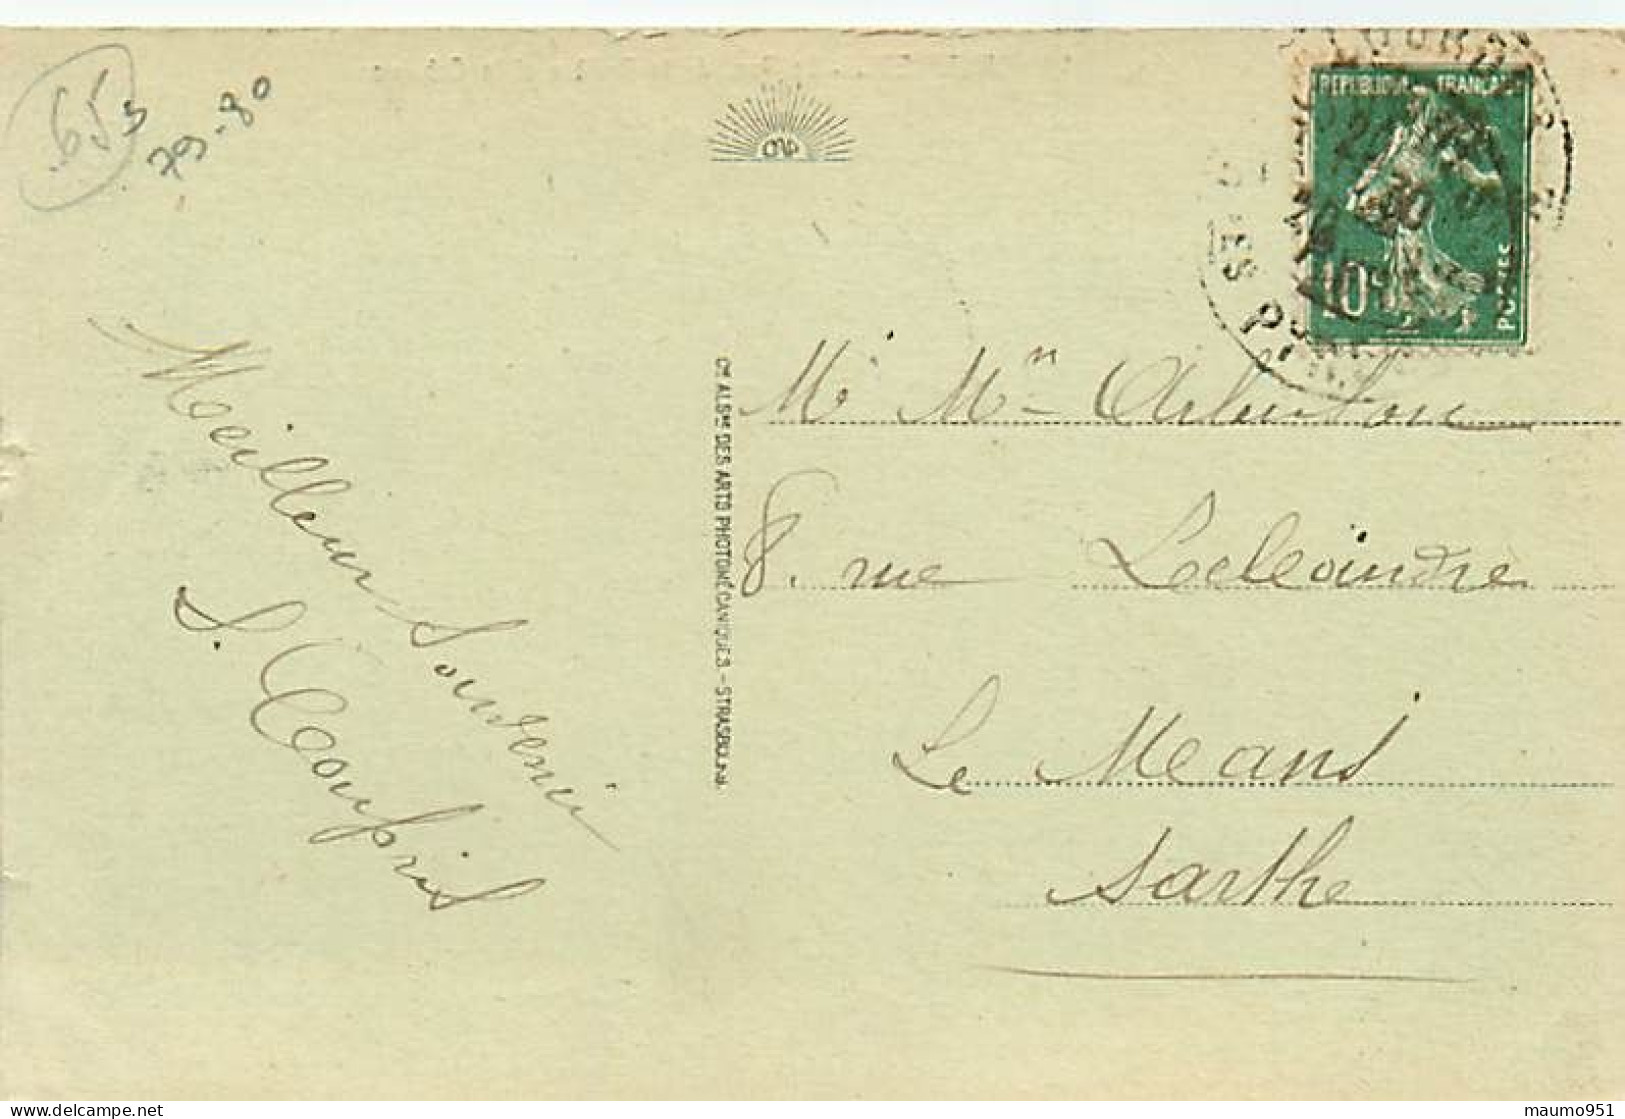 65 s
79-80
CAP
REPUBLIQUE FRANCAISE
10c
POSTES
LOURDES
30
Cie ALSne DES ARTS PHOTOMÉCANIQUES - STRASBOURG
Meilleur Souvenir
Mr Mn
8. rue
Le Mans
Sarthe
delcampe.net
maumo951